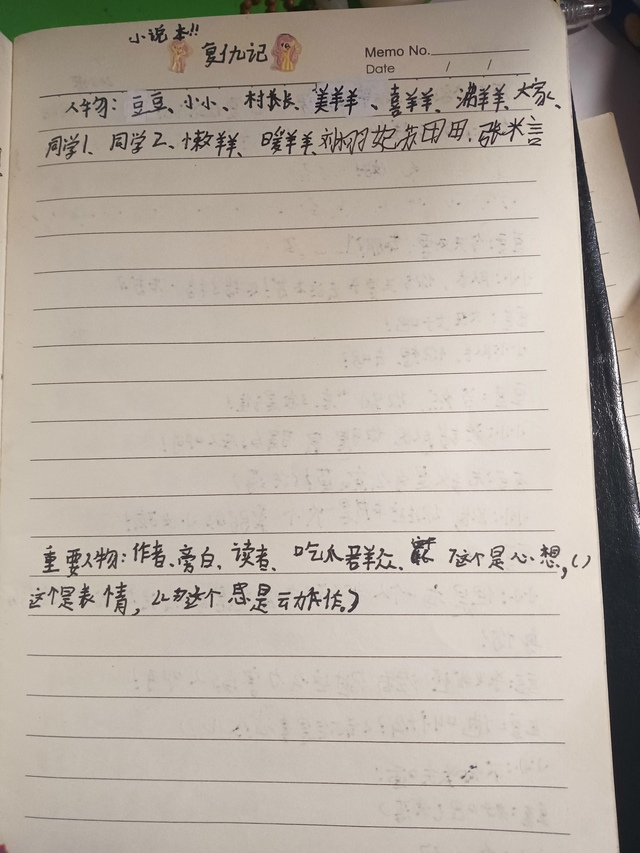 小说本!!
复仇记
Memo No.
Date / /
人物：豆豆、小小、村长、美羊羊、喜羊羊、沸羊羊、大家、
同学1、同学2、懒羊羊、暖羊羊、刘羽妃、苏田田、张米言
重要人物：作者、旁白、读者、吃瓜群众、「这个是心想，( )
这个是表情，这个思是动作。)